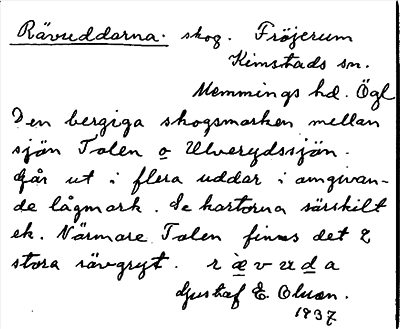 Rävuddarna. skog. Fröjerum
Kimstads sn.
Memmings hd. Ögl
Den bergiga skogsmarken mellan
sjön Tolen o Ulverydssjön.
Går ut i flera uddar i omgivan-
de lågmark. Se kartorna särskilt
ek. Närmare Tolen finns det 2
stora rävgryt. r æ v u d a
Gustaf E. Olson.
1937